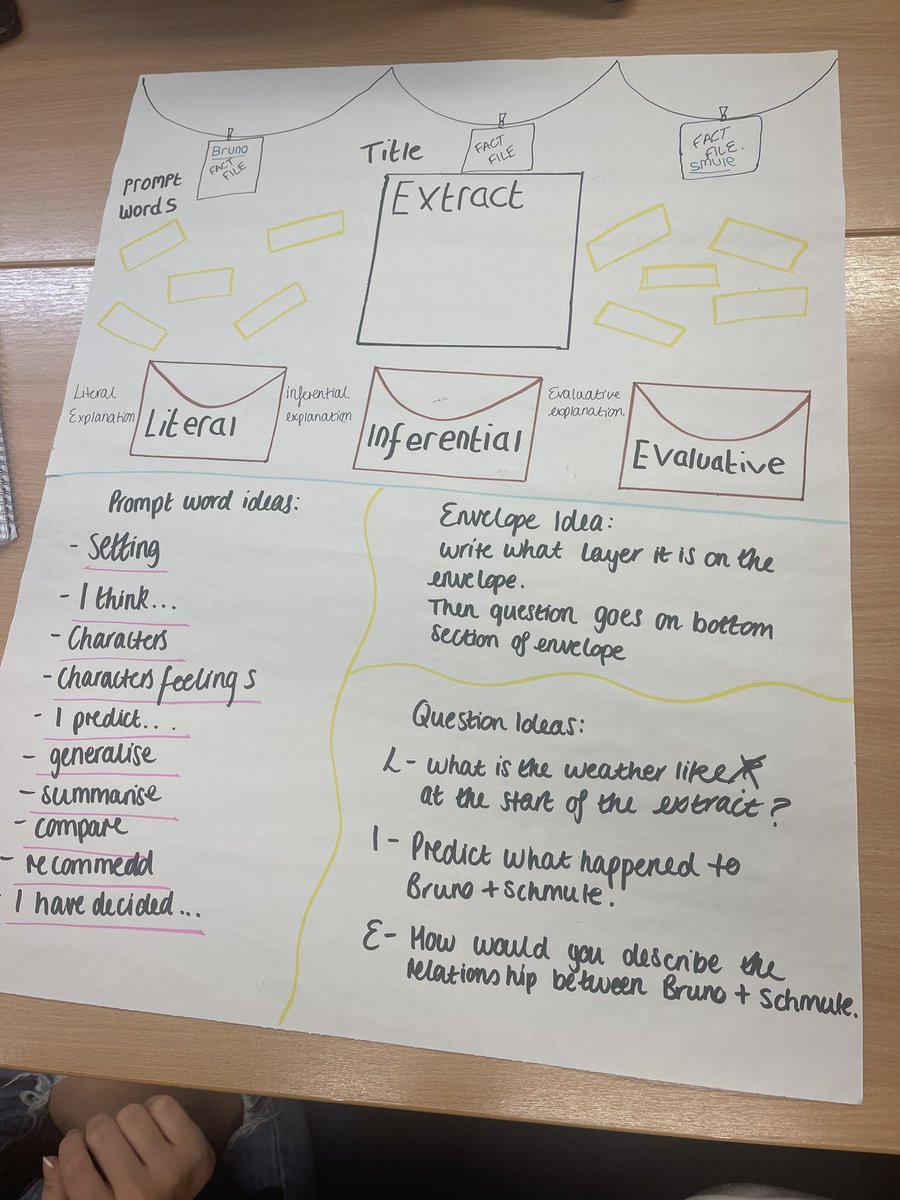 Bruno
FACT
FILE
Title
FACT
FILE
FACT
FILE.
Smule
Prompt
Words
Extract
Literal
Explanation
Literal
inferential
explanation
Inferential
Evaluative
explanation.
Evaluative
Prompt word ideas:
- Setting
- I think...
- Characters
- Characters feelings
- I predict....
- generalise
- summarise
- compare
- recommedd
- I have decided...
Envelope Idea:
write what layer it is on the
envelope.
Then question goes on bottom
section of envelope
Question Ideas:
L - what is the weather like
at the start of the extract?
I - Predict what happened to
Bruno + Schmule.
E - How would you describe the
relationship between Bruno + Schmule.